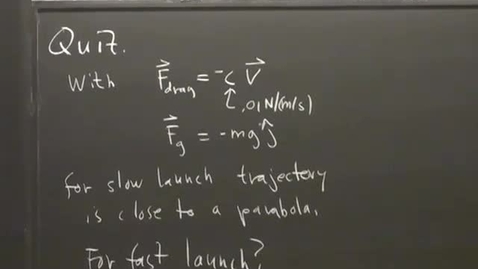 Quiz.
With F⃗drag = -c V⃗
.01 N/(m/s)
F⃗g = -mg ĵ
for slow launch trajectory
is close to a parabola.
For fast launch?